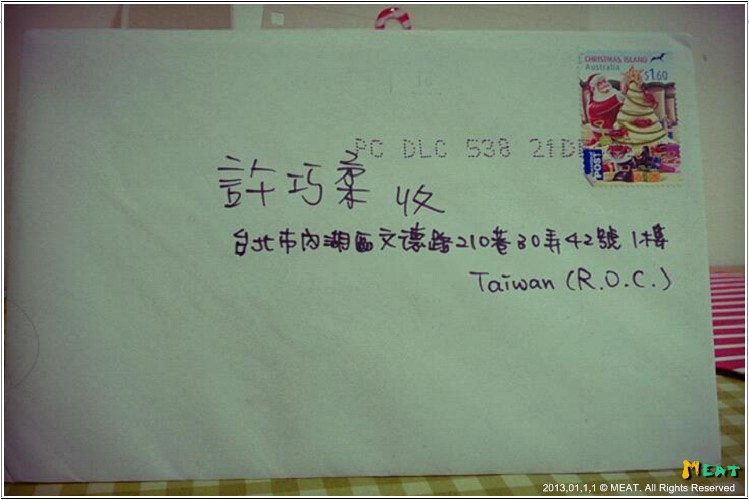 CHRISTMAS ISLAND
Australia
$1.60
POST
PC DLC 538 21DE
許巧柔 收
台北市內湖區文德路210巷30弄42號1樓
Taiwan (R.O.C.)
MEAT
2013,01,1,1 © MEAT. All Rights Reserved